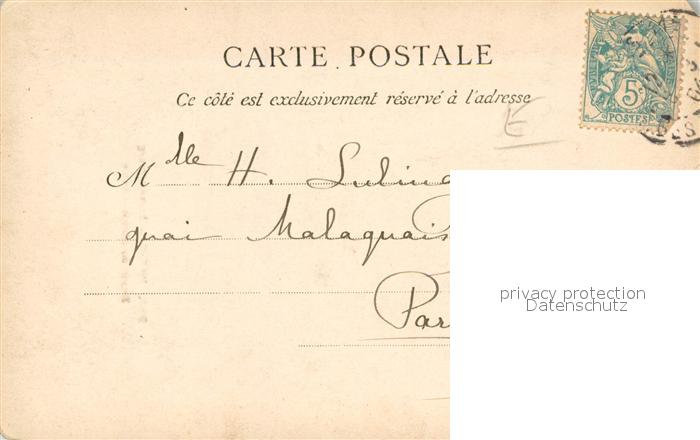 CARTE POSTALE
Ce côté est exclusivement réservé à l'adresse
5c
POSTES
E
Mlle H.
quai Malaquais
Par
privacy protection
Datenschutz